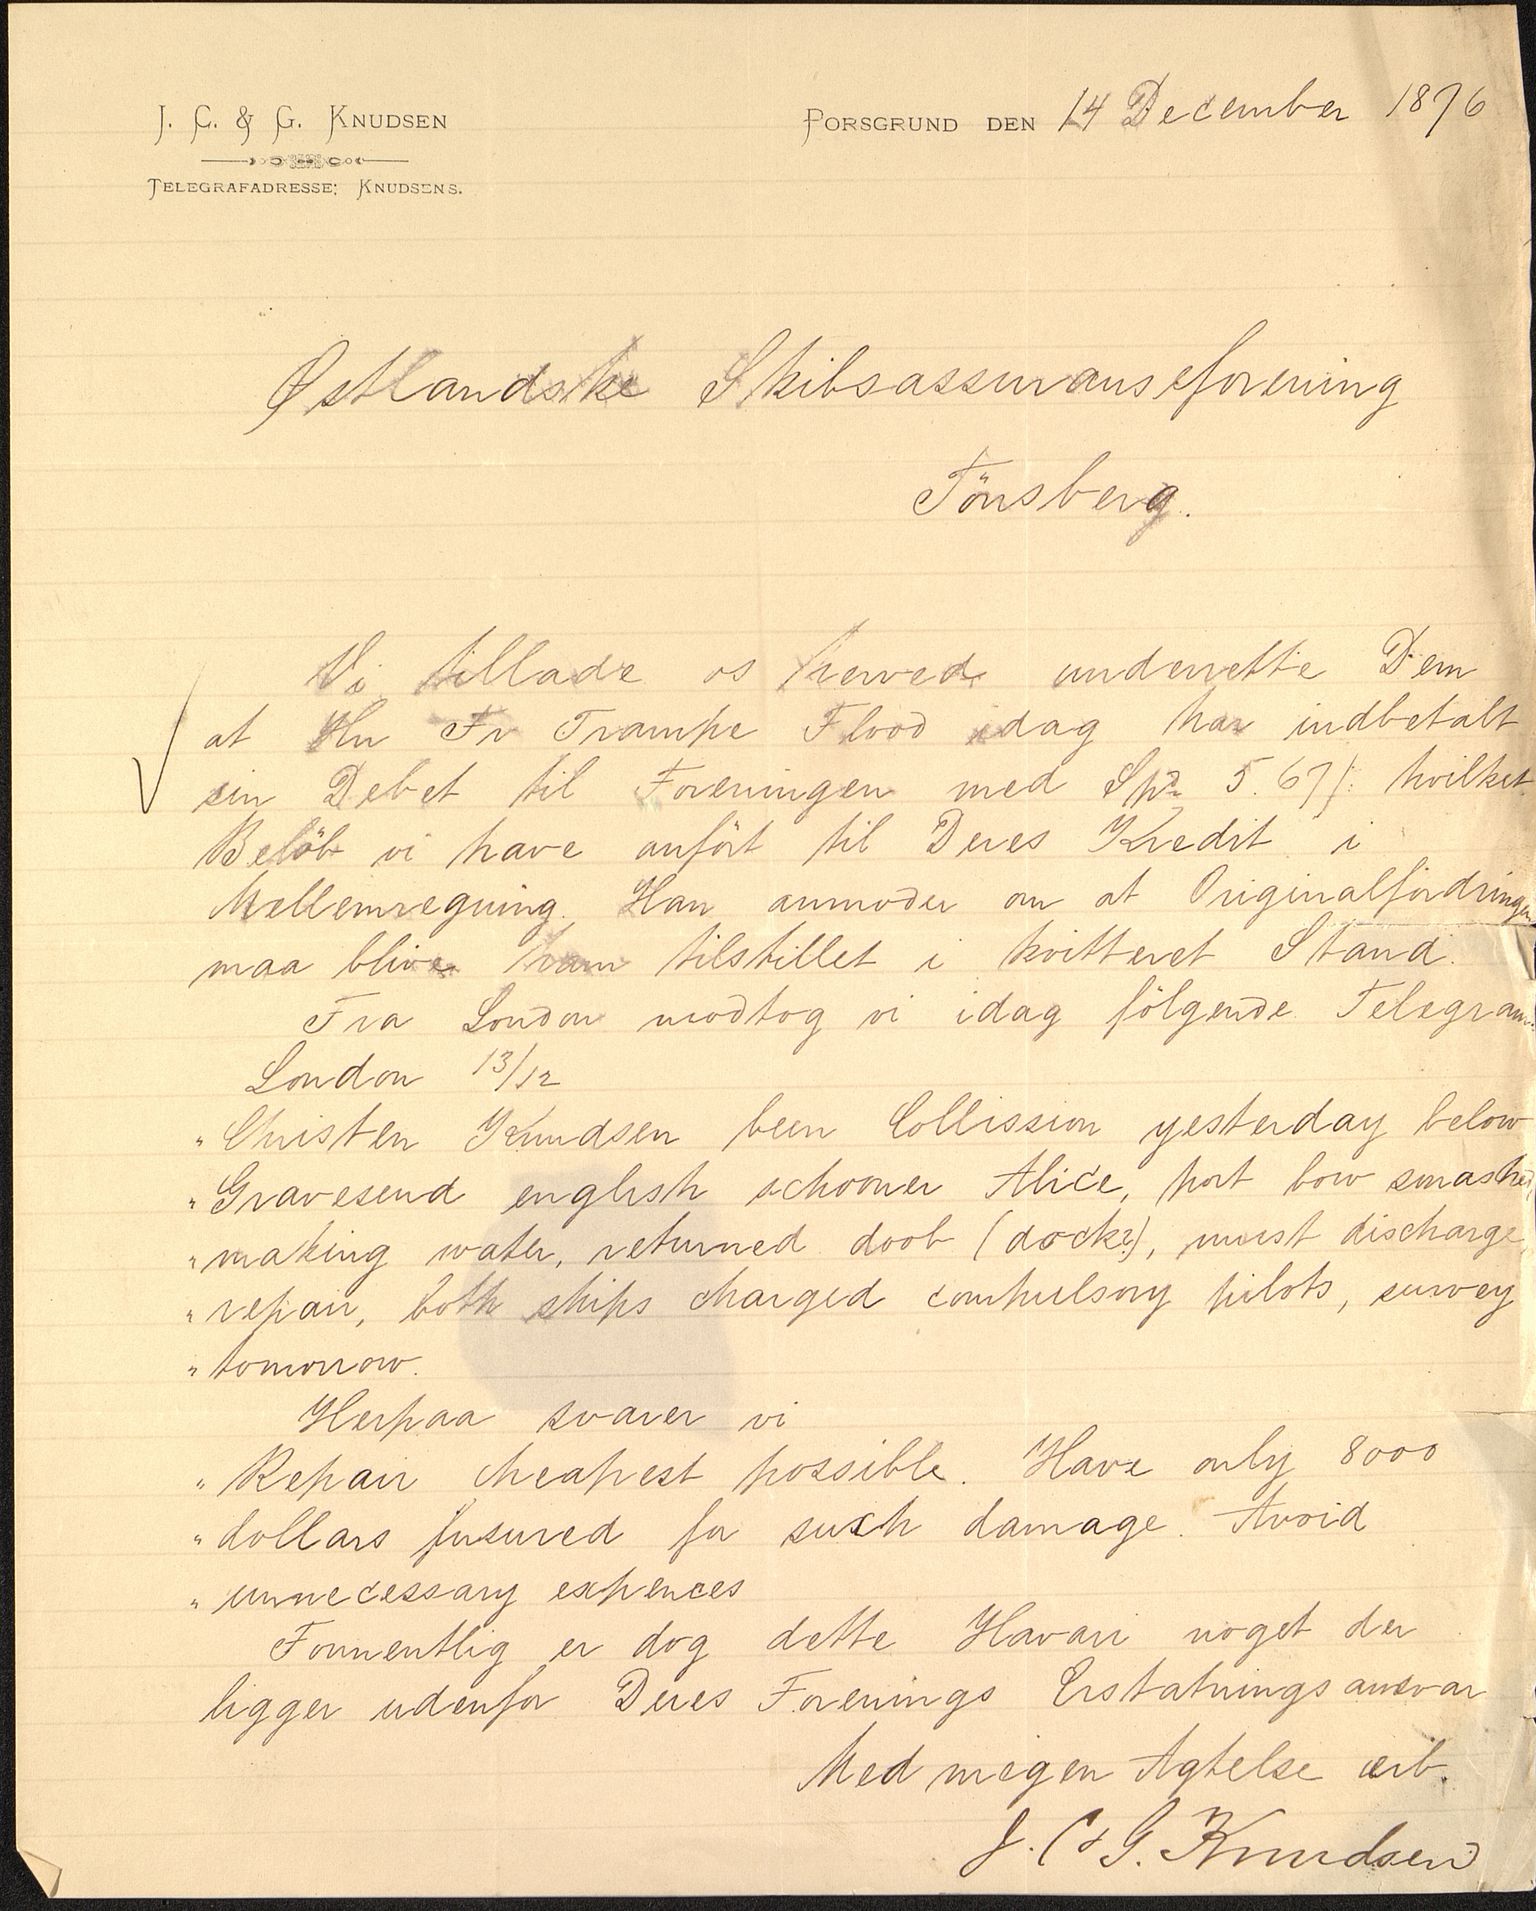 J. C. & G. KNUDSEN
TELEGRAFADRESSE: KNUDSENS.
PORSGRUND DEN 14 December 1876
Østlandske Skibsassuranseforening
Tönsberg.
Vi tillade os herved underrette Dem
at Hr Fr Trampe Flood idag har indbetalt
sin Debet til Foreningen med Spd 5. 67/: hvilket
Belöb vi have anfört til Deres Kredit i
Mellemregning. Han anmoder om at Originalfordringen
maa blive ham tilstillet i kvitteret Stand.
Fra London modtog vi idag fölgende Telegram:
London 13/12
" Christen Knudsen been Collission yesterday below
" Gravesend english schooner Alice, port bow smashed
" making water, returned doob (dock?), must discharge
" repair, both ships charged compulsory pilots, survey
" tomorrow.
Herpaa svarer vi
" Repair cheapest possible. Have only 8000
" dollars insured for such damage. Avoid
" unnecessary expences
Formentlig er dog dette Havari noget der
ligger udenfor Deres Forenings Erstatningsansvar
Med megen Agtelse ærb.
J. C & G. Knudsen